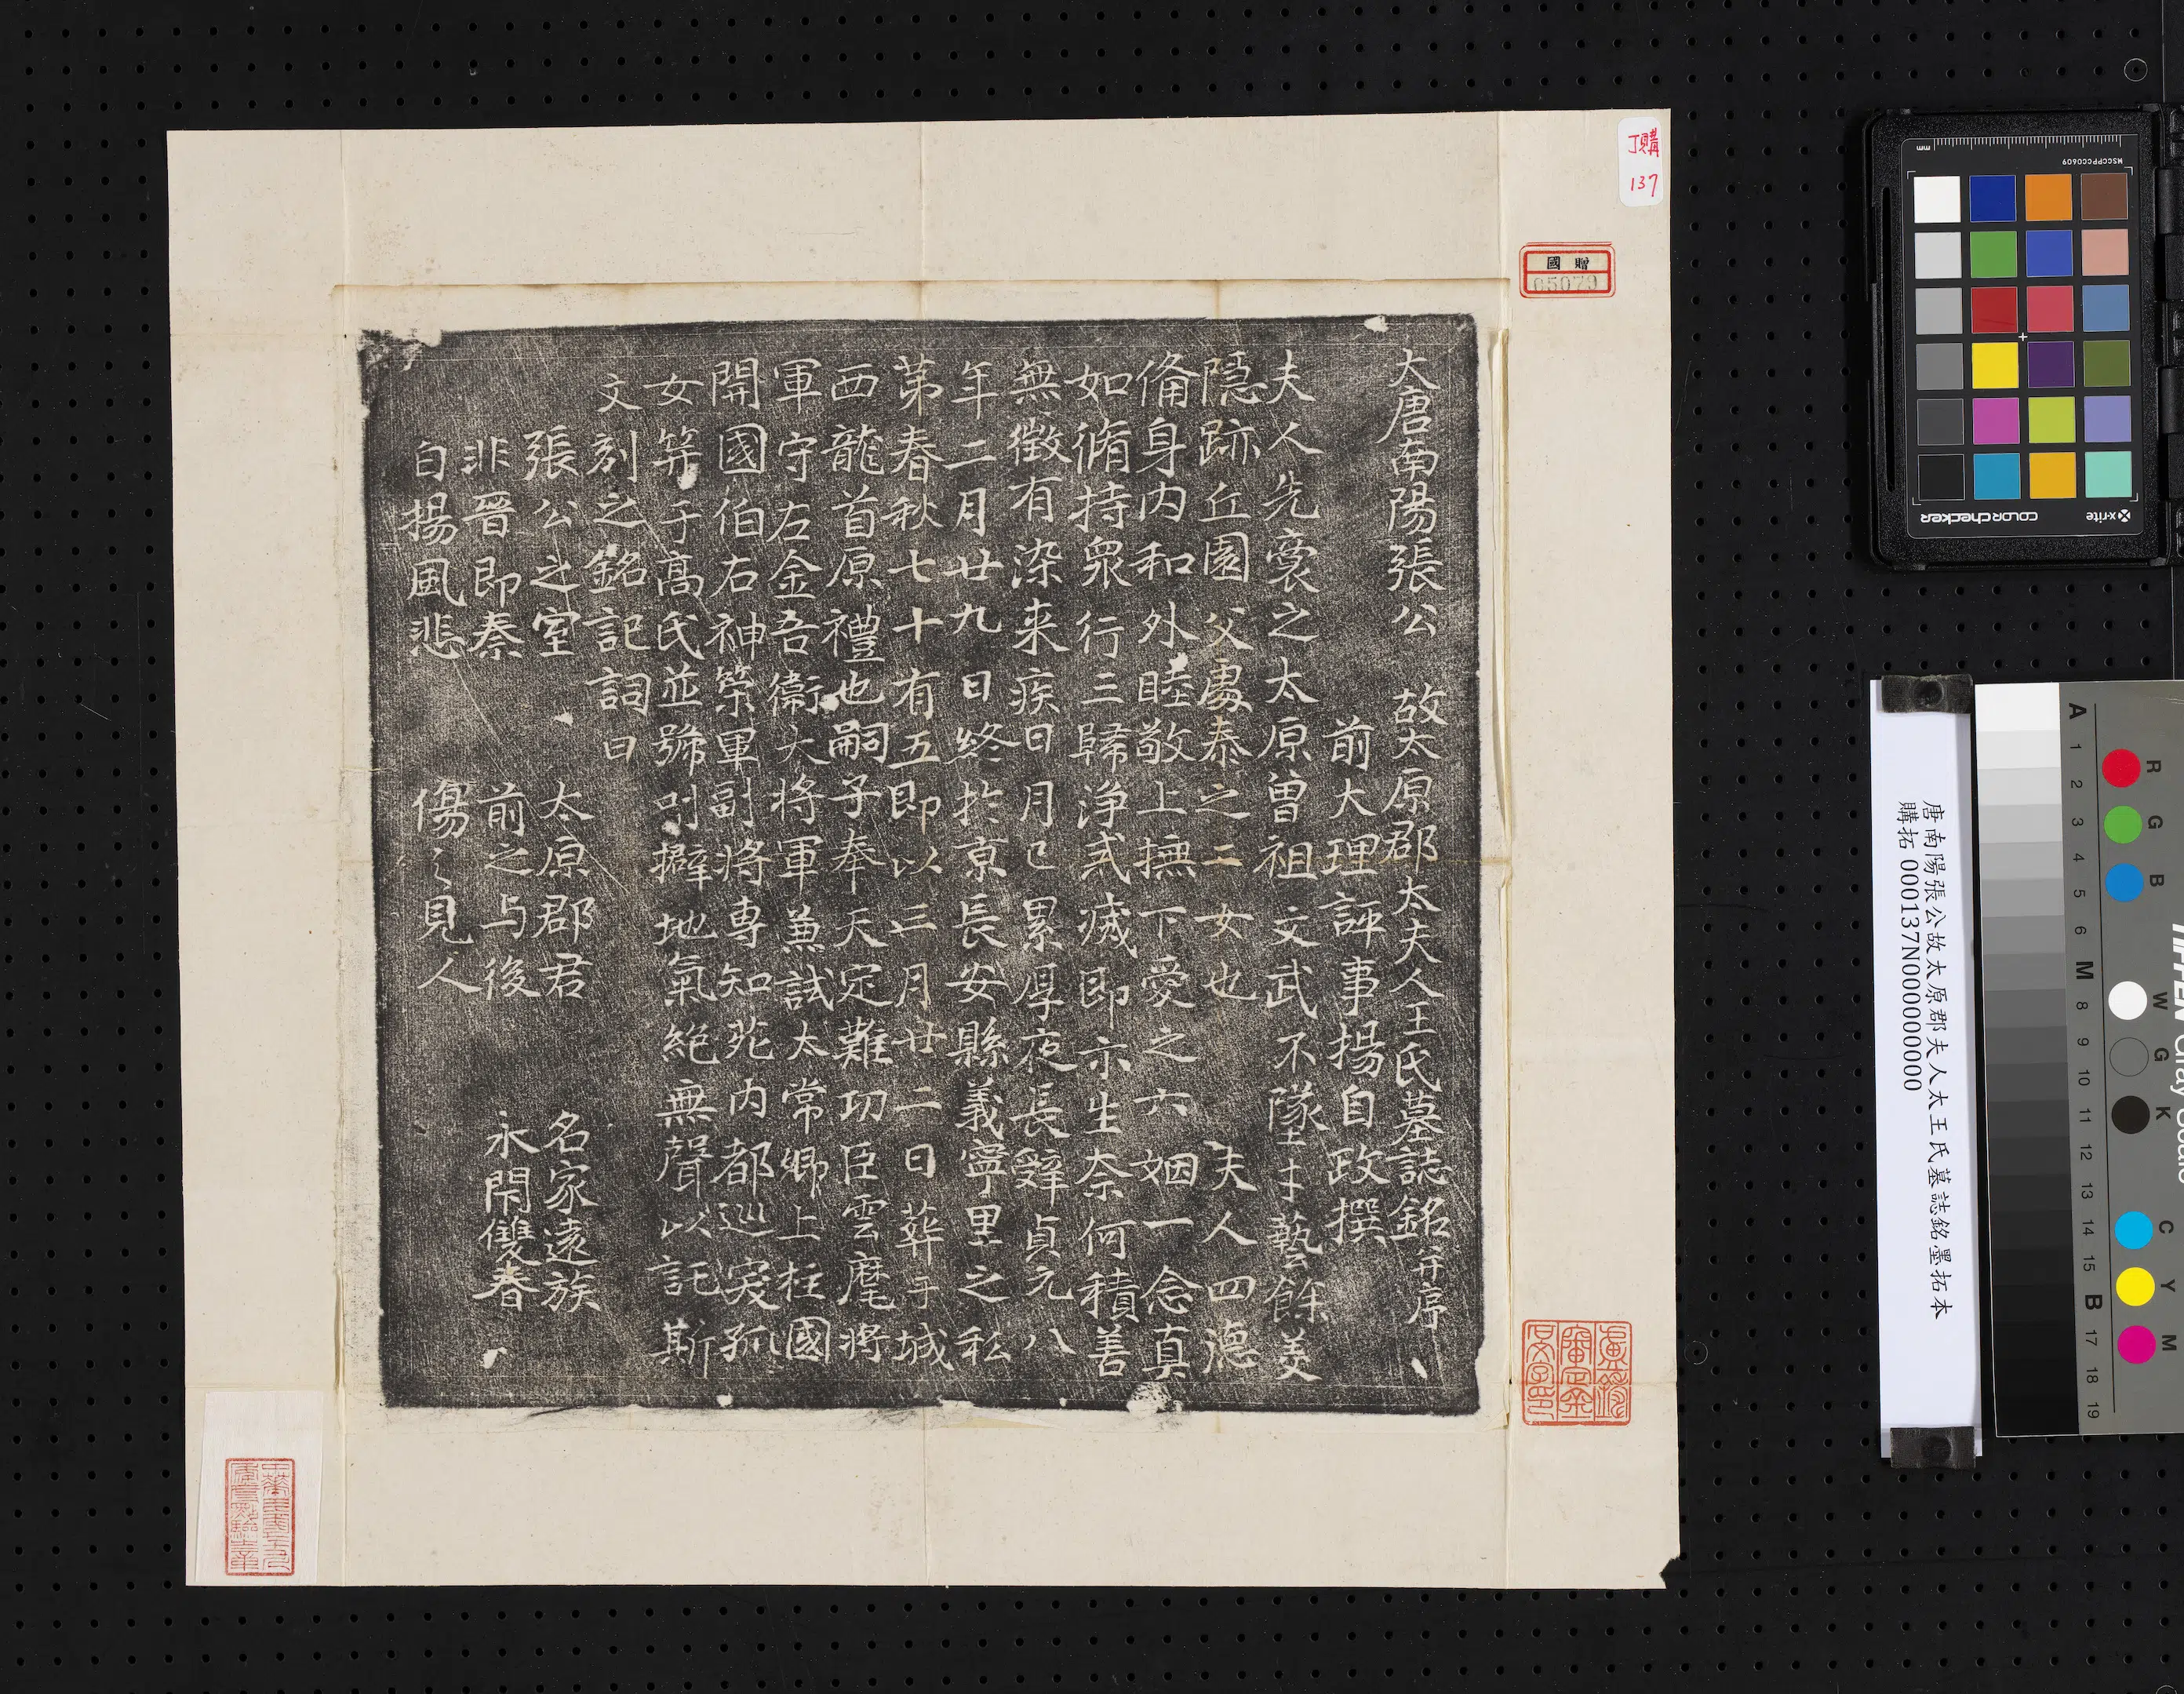 大唐南陽張公 故太原郡太夫人王氏墓誌銘并序
前大理評事揚自政撰
夫人先裔之太原曾祖文武不墜才藝餘羙
隱跡丘園父處泰之二女也 夫人四德
俻身内和外睦敬上撫下愛之六姻一念真
如脩持衆行三歸浄戒痬即示生奈何積善
無徵有染来疾日月已累厚夜長辤貞元八
年二月廿九日終於京長安縣義寧里之私
苐春秋七十有五即以三月廿二日葬于城
西龍首原禮也嗣子奉天定難功臣雲麾將
軍守右金吾衞大將軍兼試太常卿上柱國
開國伯右神策軍副將專知苑内都巡寏孤
女等于髙氏並號叫擗地氣絕無聲以託斯
文刻之銘記詞曰
張公之室 太原郡君 名家遠族
非晉即秦 前之与後 永閇雙春
白揚風悲 傷〻見人
丁購
137
國贈
05079
唐南陽張公故太原郡夫人太王氏墓誌銘墨拓本
購拓 000137N000000000
mm
MSCCPCC0609
x-rite
colorchecker
R G B W G K C Y M
A 1 2 3 4 5 6 M 8 9 10 11 12 13 14 15 B 17 18 19